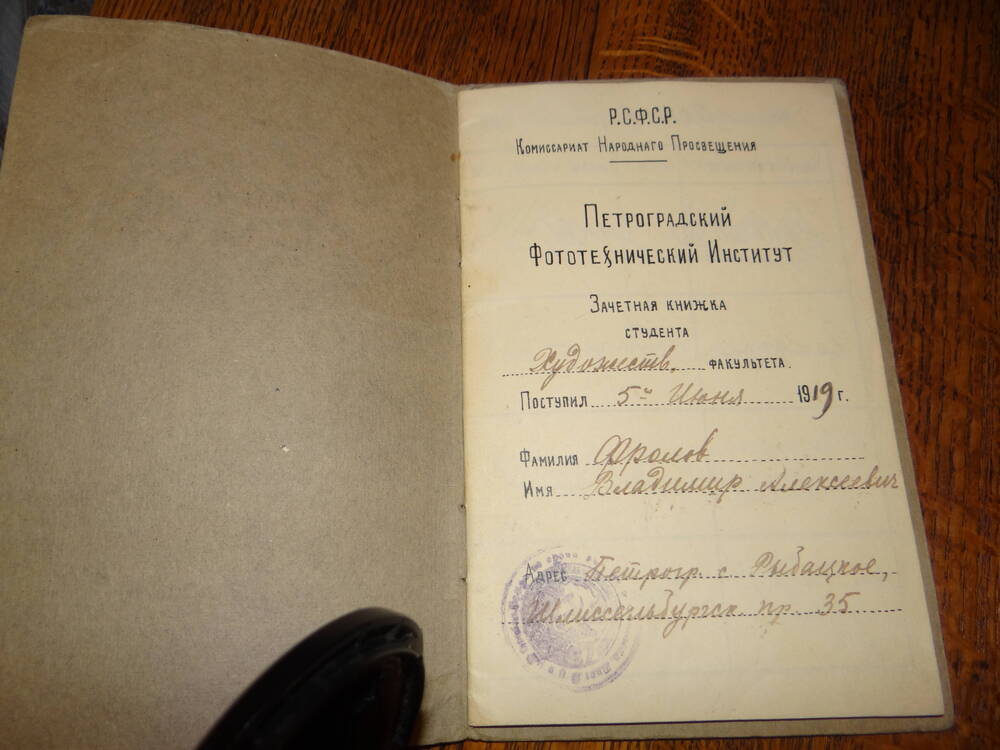 Р.С.Ф.С.Р.
Комиссариат Народнаго Просвещения
Петроградский
Фототехнический Институт
Зачетная книжка
студента
Художеств. факультета.
Поступил 5го Июня 1919 г.
Фамилия Фролов
Имя Владимир Алексеевич
Адрес Петрогр. с. Рыбацкое,
Шлиссельбургск пр. 35